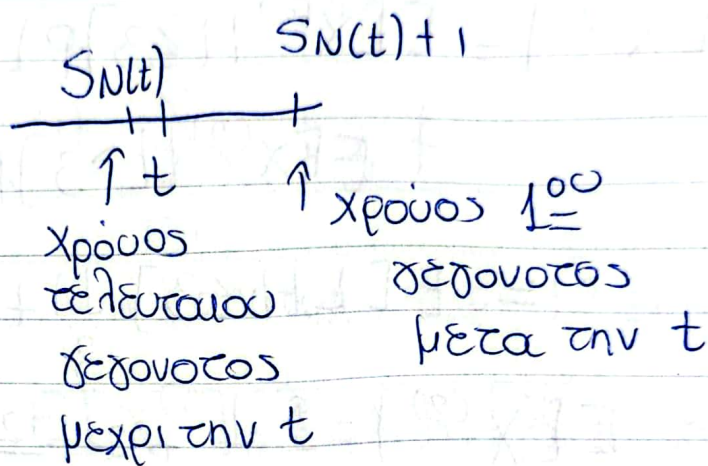 SN(t)
SN(t)+1
t
χρόνος
τελευταιου
γεγονοτος
μεχρι την t
χρόνος 1ου
γεγονοτος
μετα την t